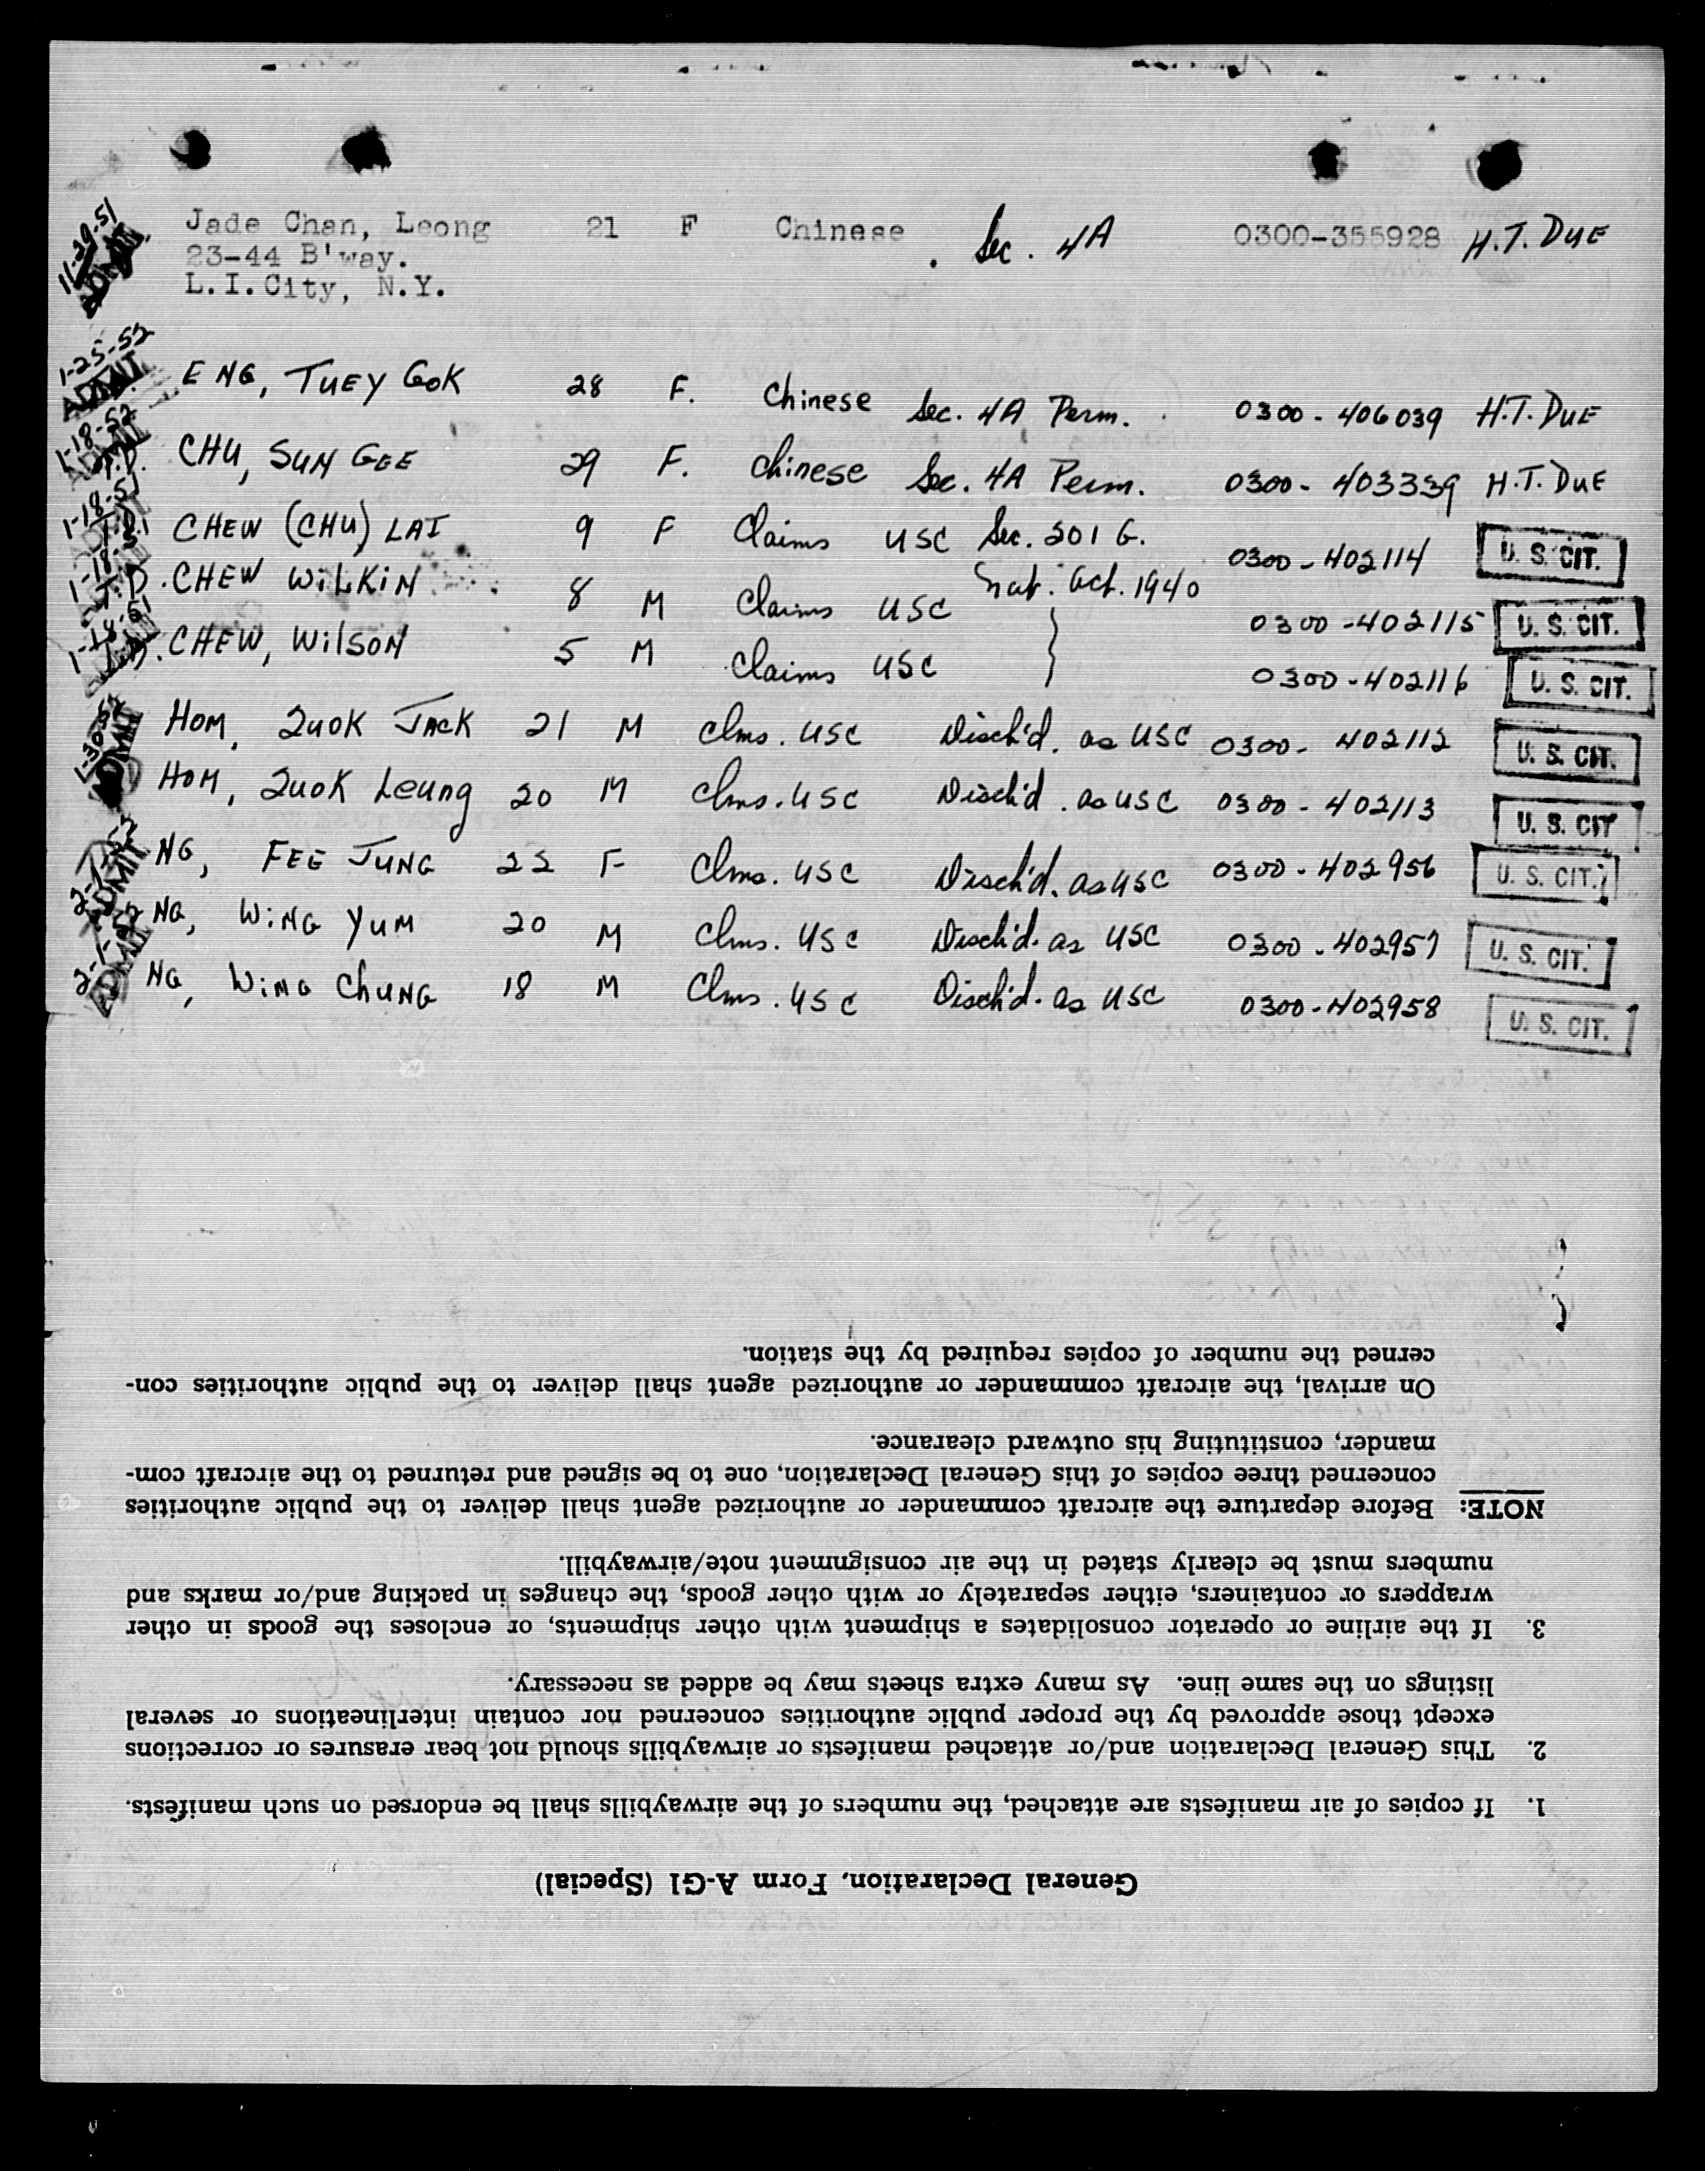 11-29-51 ADMIT Jade Chan, Leong 21 F Chinese Sec. 4A 0300-355928 H.T. DUE
23-44 B'way.
L.I.City, N.Y.
1-25-52 ADMIT ENG, TUEY GOK 28 F. Chinese Sec. 4A Perm. 0300-406039 H.T. DUE
1-18-52 ADMIT CHU, SUN GEE 29 F. Chinese Sec. 4A Perm. 0300-403339 H.T. DUE
CHEW (CHU) LAI 9 F Claims USC Sec. 201 G. 0300-402114 U. S. CIT.
Nat. Act. 1940
CHEW WILKIN 8 M Claims USC } 0300-402115 U. S. CIT.
CHEW, WILSON 5 M Claims USC 0300-402116 U. S. CIT.
1-30-52 ADMIT HOM, QUOK JACK 21 M Clms. USC Disch'd. as USC 0300-402112 U. S. CIT.
HOM, QUOK Leung 20 M Clms. USC Disch'd. as USC 0300-402113 U. S. CIT
ADMIT NG, FEE JUNG 22 F Clms. USC Disch'd. as USC 0300-402956 U. S. CIT.
NG, WING YUM 20 M Clms. USC Disch'd. as USC 0300-402957 U. S. CIT.
ADMIT NG, WING CHUNG 18 M Clms. USC Disch'd. as USC 0300-402958 U. S. CIT.
General Declaration, Form A-G1 (Special)
1. If copies of air manifests are attached, the numbers of the airwaybills shall be endorsed on such manifests.
2. This General Declaration and/or attached manifests or airwaybills should not bear erasures or corrections
except those approved by the proper public authorities concerned nor contain interlineations or several
listings on the same line. As many extra sheets may be added as necessary.
3. If the airline or operator consolidates a shipment with other shipments, or encloses the goods in other
wrappers or containers, either separately or with other goods, the changes in packing and/or marks and
numbers must be clearly stated in the air consignment note/airwaybill.
NOTE: Before departure the aircraft commander or authorized agent shall deliver to the public authorities
concerned three copies of this General Declaration, one to be signed and returned to the aircraft com-
mander, constituting his outward clearance.
On arrival, the aircraft commander or authorized agent shall deliver to the public authorities con-
cerned the number of copies required by the station.